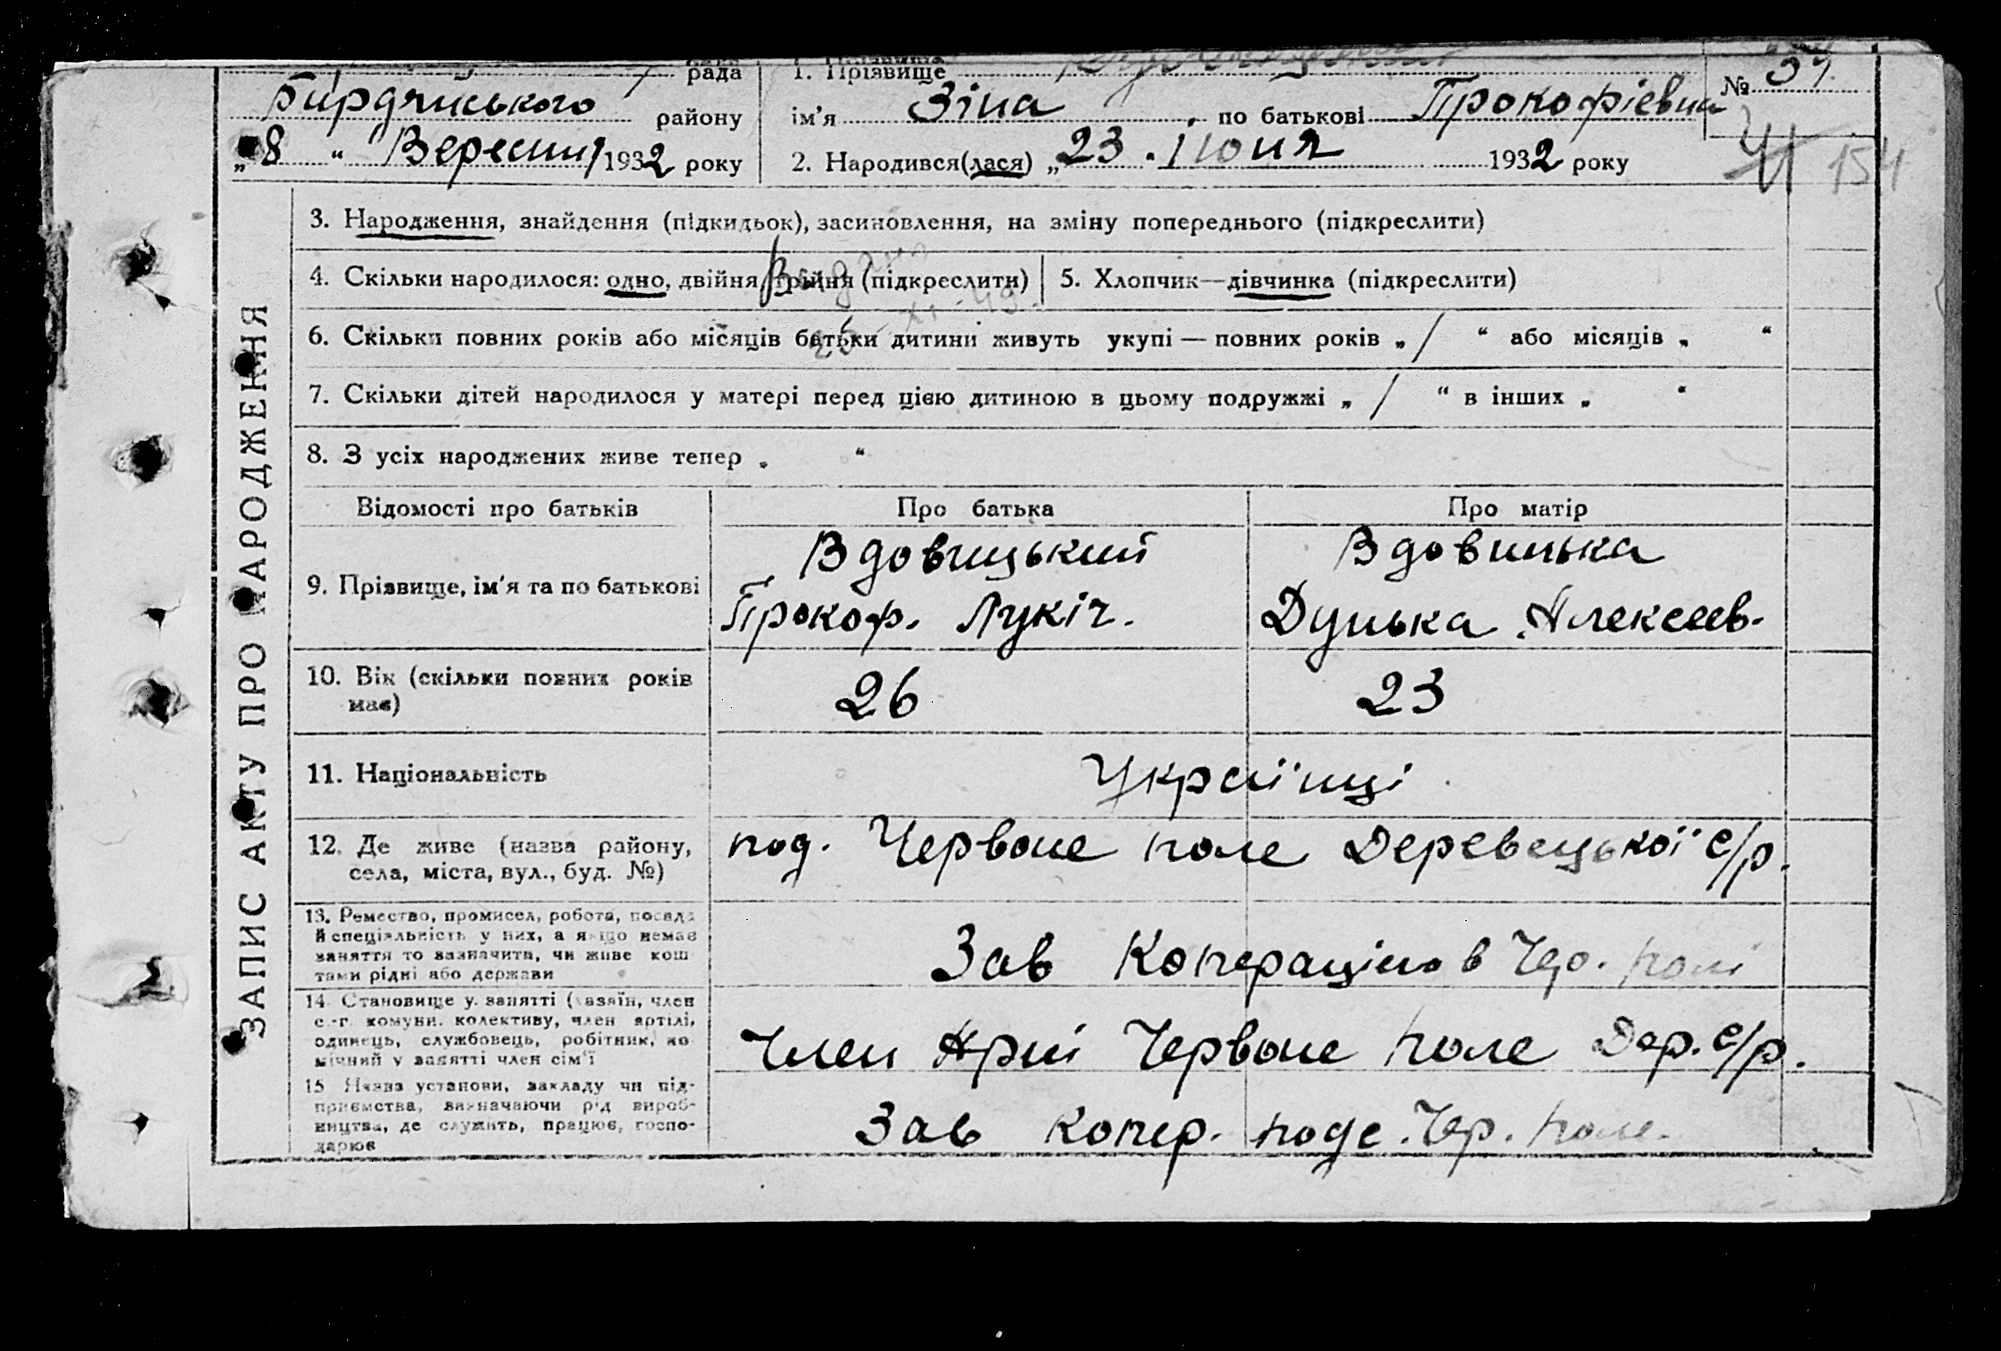 рада
1. Прізвище
№ 37
Бирдянського району
ім'я Зіна по батькові Прокофіевна
„8“ Вересня 1932 року
2. Народився(лася) „23. іюня 1932 року
41 154
ЗАПИС АКТУ ПРО НАРОДЖЕННЯ
3. Народження, знайдення (підкидьок), засиновлення, на зміну попереднього (підкреслити)
4. Скільки народилося: одно, двійня, трійня (підкреслити)
5. Хлопчик—дівчинка (підкреслити)
6. Скільки повних років або місяців батьки дитини живуть укупі — повних років „ / “ або місяців „ “
7. Скільки дітей народилося у матері перед цією дитиною в цьому подружжі „ / “ в інших „ “
8. З усіх народжених живе тепер „ “
Відомості про батьків
Про батька
Про матір
9. Прізвище, ім'я та по батькові
Вдовицький
Прокоф. Лукіч.
Вдовицька
Дунька Алексеев.
10. Вік (скільки повних років має)
26
23
11. Національність
Українці
12. Де живе (назва району,
села, міста, вул., буд. №)
под. Червоне поле Деревецької с/р.
13. Ремество, промисел, робота, посада
й спеціяльність у них, а якщо немає
заняття то зазначити, чи живе кош
тами рідні або держави
Зав Коперацією в Чер. полі
14. Становище у занятті (хазяїн, член
с.-г. комуни, колективу, член артілі,
одинець, службовець, робітник, по
мічний у занятті член сім'ї
Член Арті Червоне поле Дер. с/р.
15 Назва установи, закладу чи під-
приємства, зазначаючи рід вироб-
ництва, де служить, працює, госпо-
дарює
Зав копер. поде. Чер. поле.